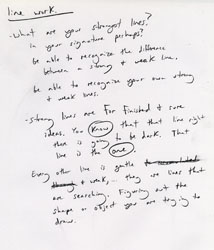 line work.
- What are your strongest lines?
In your signature perhaps?
be able to recognize the difference
between a strong + weak line.
be able to recognize your own strong
+ weak lines.
- strong lines are for finished + sure
ideas. You know that that line right
there is going to be dark. That
line is the one.
Every other line is gentle
+ weak,... they are lines that
are searching. Figuring out the
shape or object you are trying to
draw.